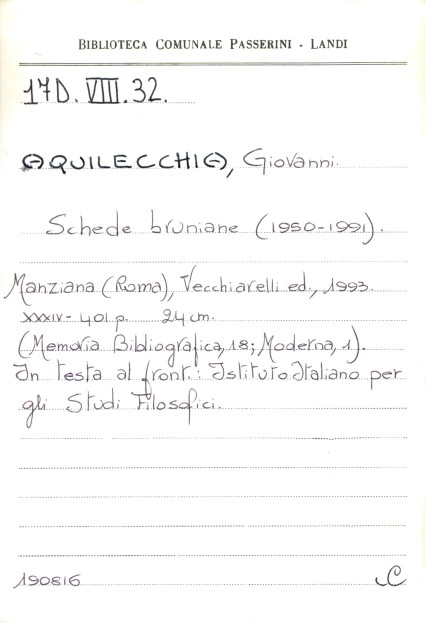 BIBLIOTECA COMUNALE PASSERINI - LANDI
17D. VIII. 32.
AQUILECCHIA, Giovanni.
Schede bruniane (1950-1991).
Manziana (Roma), Vecchiarelli ed., 1993.
XXXIV- 401 p. 24 cm.
(Memoria Bibliografica, 18; Moderna, 1).
In testa al front.: Istituto Italiano per
gli Studi Filosofici.
190816 C